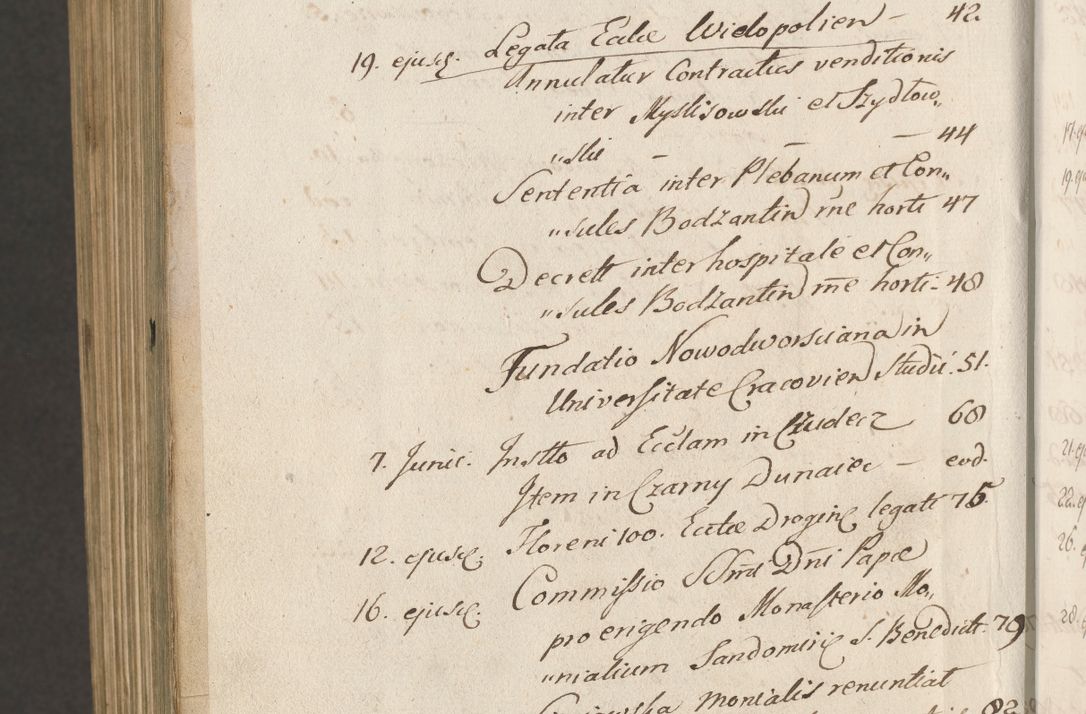 19. ejusq. Legata Ecclae Wielopolien – 42.
Annulatur Contractus venditionis
inter Myslisowski et Szydłow„
„ski – – – 44
Sententia inter Plebanum et Con„
„sules Bodzantin rne horti 47
Decrett inter hospitale et Con„
„sules Bodzantin rne horti - 48
Fundatio Nowodworsciana in
Universitate Cracovien Studii. 51.
7. Junii. Instto ad Ecclam in Czudecz 68
Item in Czarny Dunaiec – eod.
12. ejusq. Floreni 100. Ecclae Droginę legati 75.
16. ejusq. Commissio SSmi Dni Papae
pro erigendo Monasterio Mo„
„nialium Sandomirię S. Benedicti. 79
monialis renuntiat
82